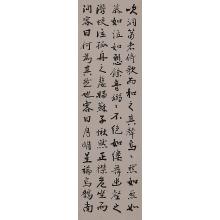 吹洞簫者倚歌而和之其聲烏々然如怨如
慕如泣如愬餘音嫋々不絕如縷舞幽壑之
潛蛟泣孤舟之嫠婦蘇子愀然正襟危坐而
問客曰何為其然也客曰月明星稀烏鵲南